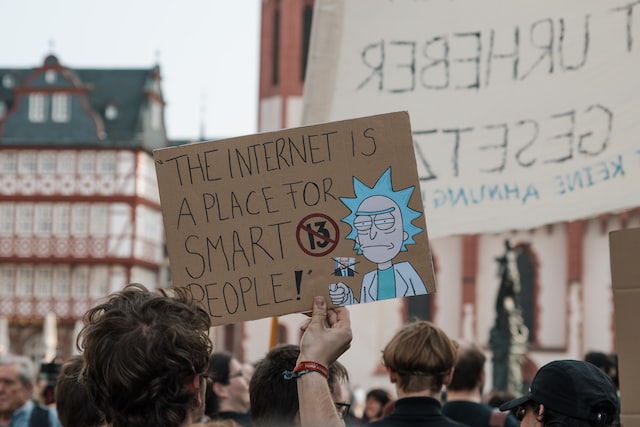 "THE INTERNET IS
A PLACE FOR
SMART 13
PEOPLE!"
URHEBER
GESETZ
KEINE AHNUNG